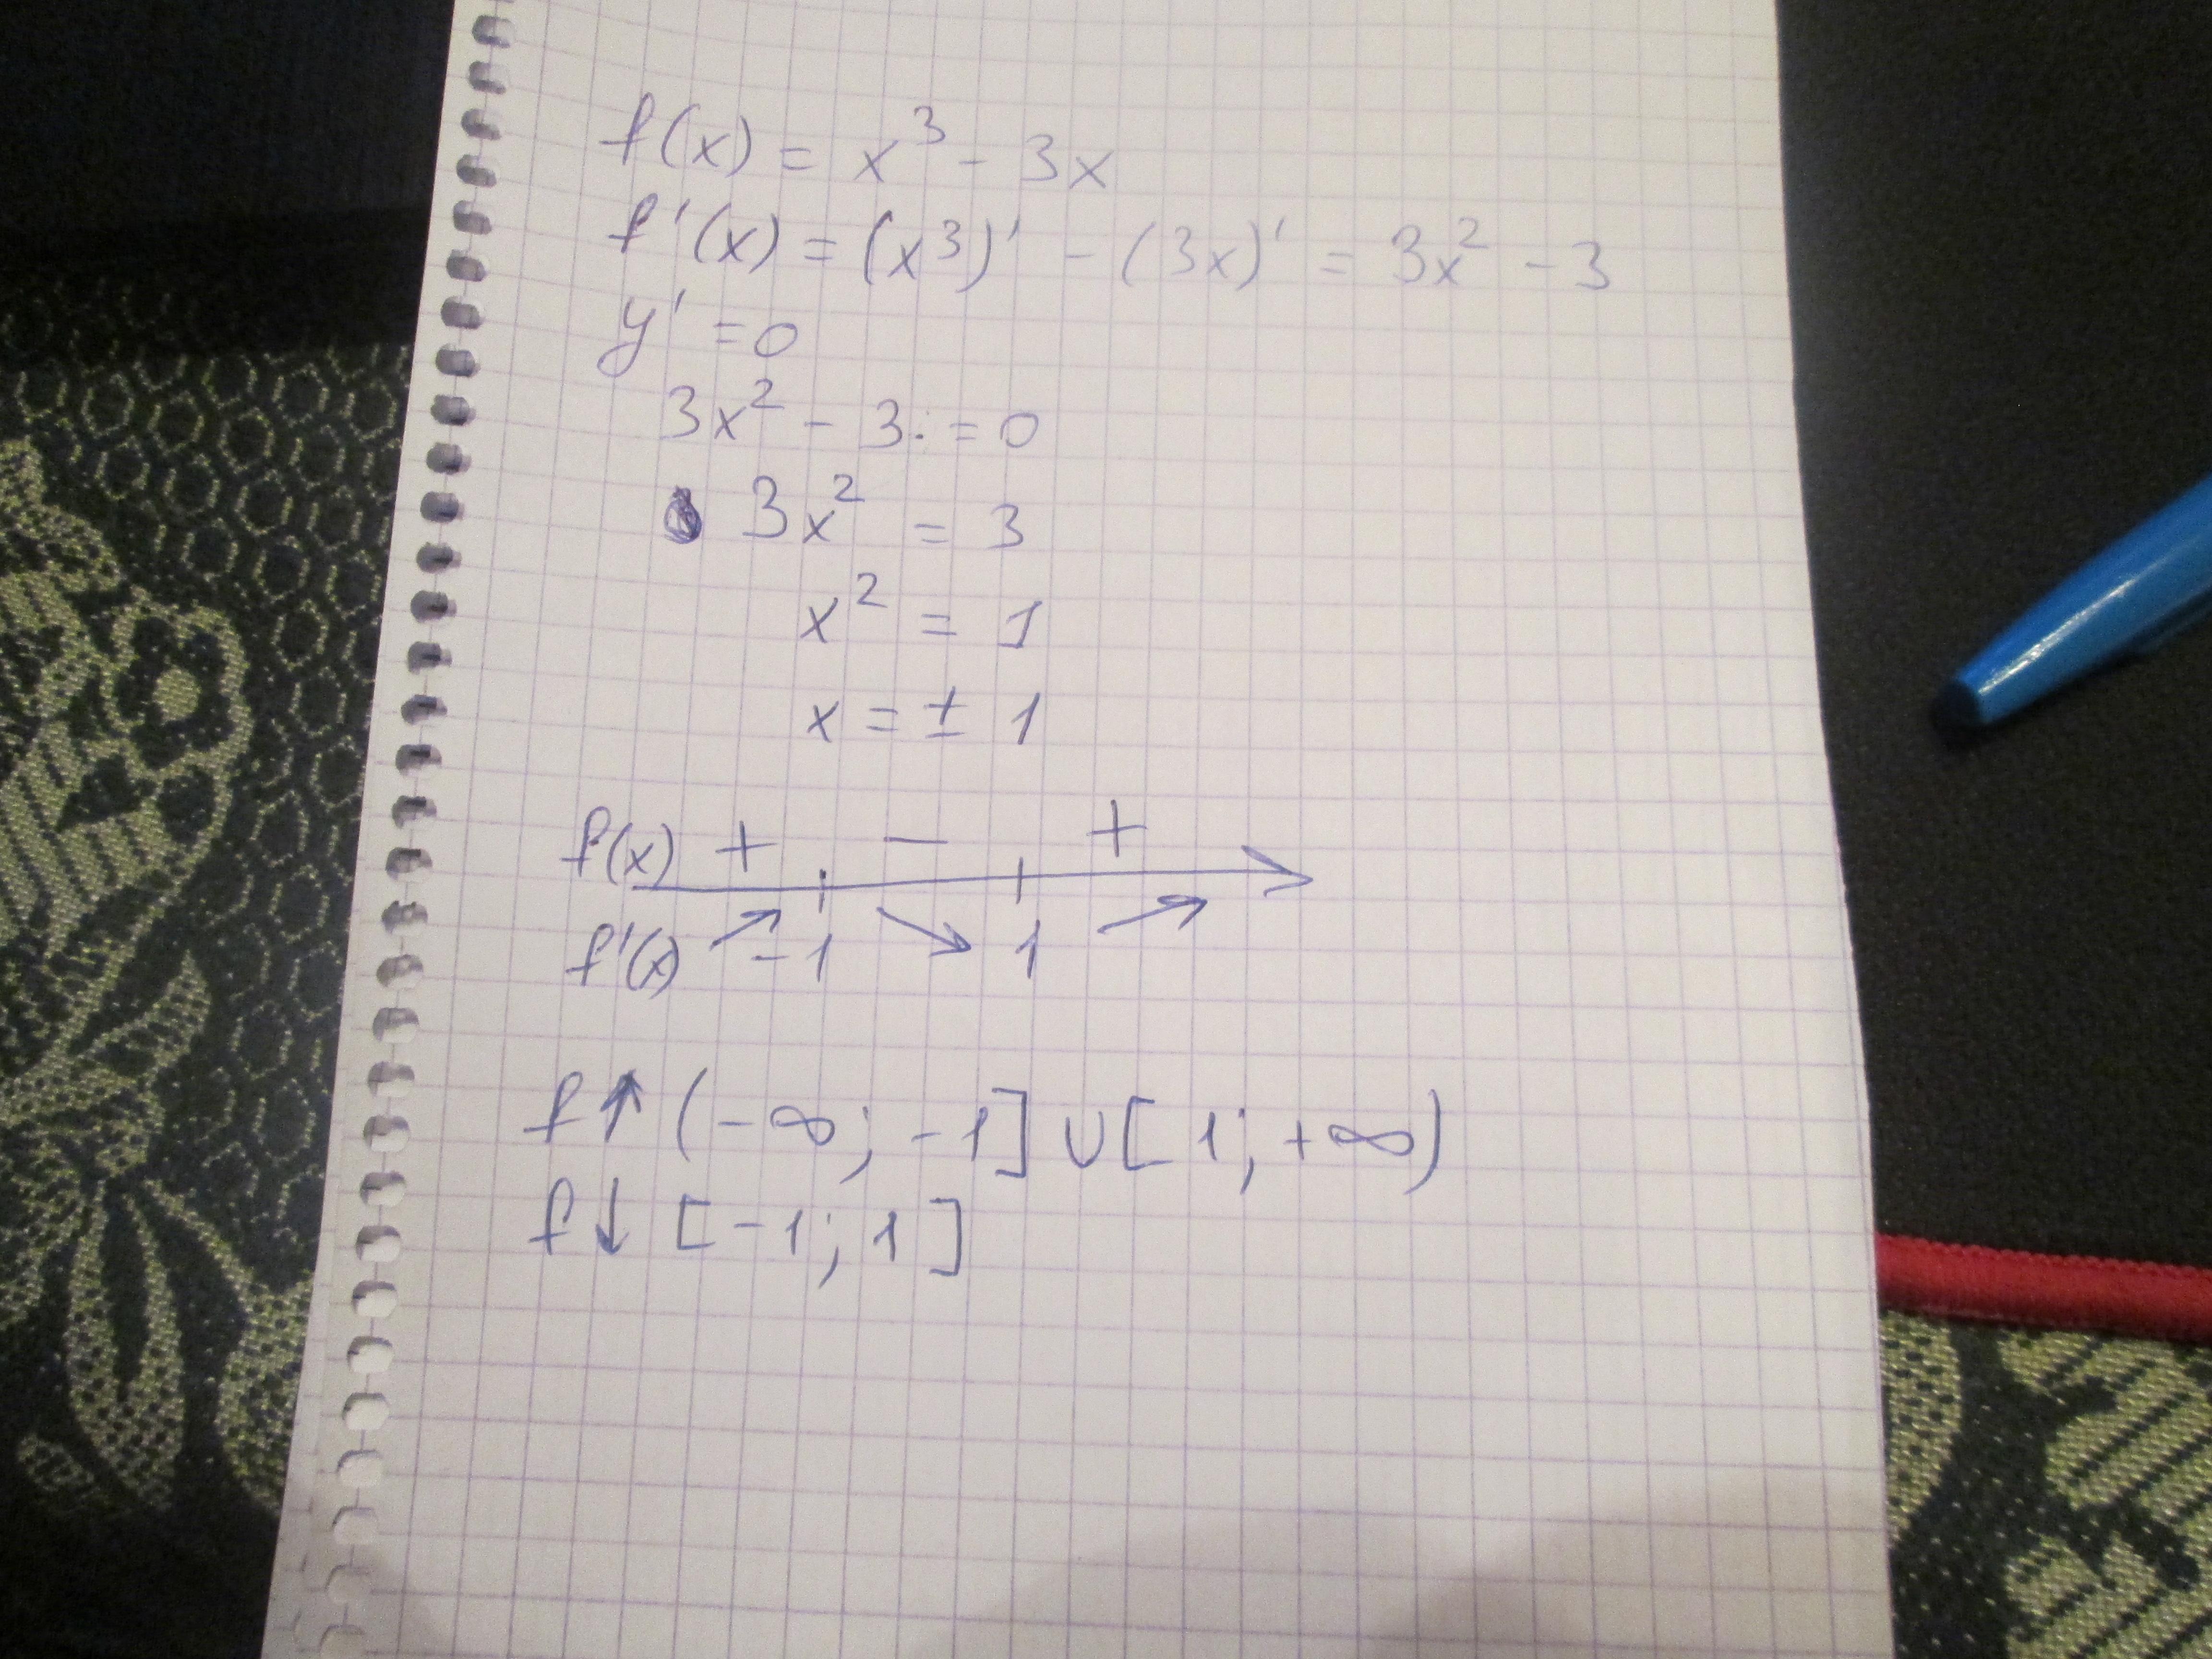 f(x) = x³ - 3x
f'(x) = (x³)' - (3x)' = 3x² - 3
y' = 0
3x² - 3 = 0
3x² = 3
x² = 1
x = ± 1
f(x) + - +
f'(x) ↗ -1 ↘ 1 ↗
f↑ (-∞; -1] ∪ [1; +∞)
f↓ [-1; 1]